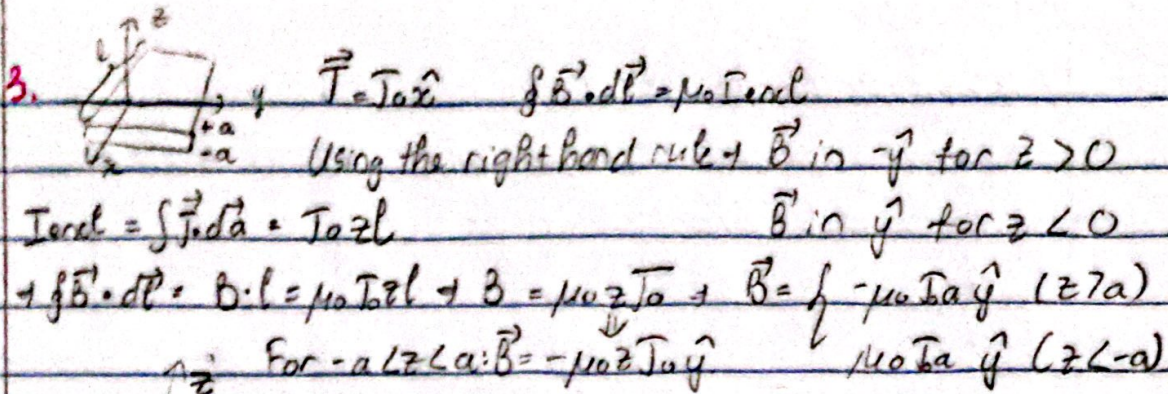 3. z l y +a -a x J⃗ = J₀x̂ ∮B⃗·dl⃗ = μ₀Iencl
Using the right hand rule → B⃗ in -ŷ for z > 0
Iencl = ∫J⃗·da⃗ = J₀zl B⃗ in ŷ for z < 0
→ ∮B⃗·dl⃗ = B·l = μ₀J₀zl → B = μ₀zJ₀ → B⃗ = { -μ₀J₀a ŷ (z>a)
⇓
For -a<z<a: B⃗ = -μ₀zJ₀ŷ μ₀J₀a ŷ (z<-a)
↑z